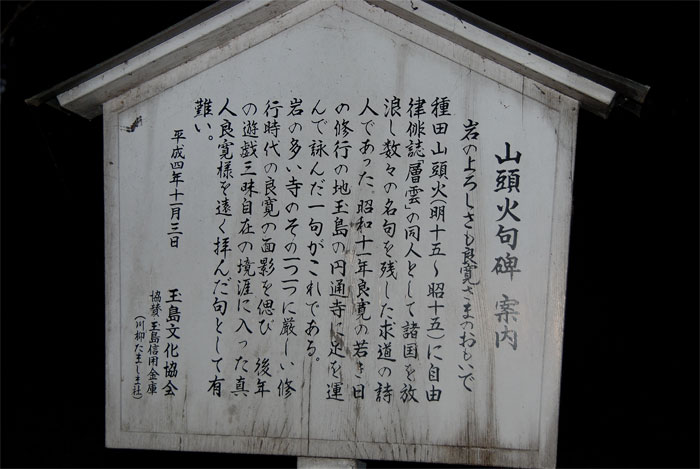 山頭火句碑 案内
岩のよろしさも良寛さまのおもいで
種田山頭火(明十五〜昭十五)に自由
律俳誌「層雲」の同人として諸国を放
浪し数々の名句を残した求道の詩
人であった、昭和十一年良寛の若き日
の修行の地玉島の円通寺に足を運
んで詠んだ一句がこれである。
岩の多い寺のその一つ一つに厳しい修
行時代の良寛の面影を偲び 後年
の遊戯三昧自在の境涯に入った真
人良寛様を遠く拝んだ句として有
難い。
平成四年十一月三日
玉島文化協会
協賛 玉島信用金庫
(川柳たましま社)